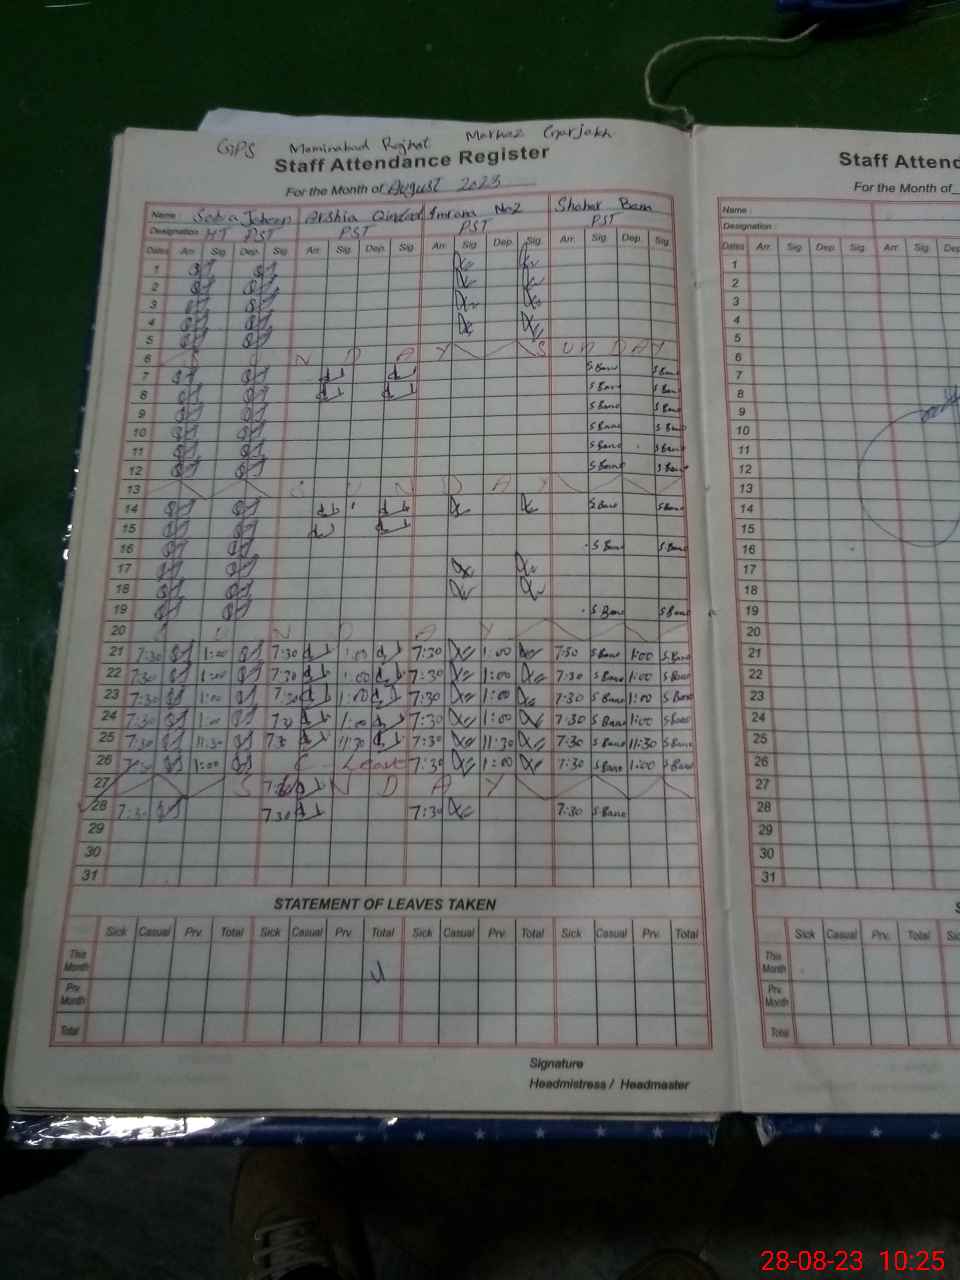 GPS Mominabad Rajkot Markaz Garjakh
Staff Attendance Register
For the Month of August 2023
Name : Sabia Jabeen Arshia Imrana No2 Shahar Bano
Designation HT PST PST PST PST
Dates Arr. Sig. Dep. Sig. Arr. Sig. Dep. Sig. Arr. Sig. Dep. Sig. Arr. Sig. Dep. Sig.
1
2
3
4
5
6 S U N D A Y SUNDAY
7 S Bano S Bano
8 S Bano S Bano
9 S Bano S Bano
10 S Bano S Bano
11 S Bano S Bano
12 S Bano S Bano
13 S U N D A Y
14 S Bano S Bano
15
16 S Bano S Bano
17
18
19 S Bano S Bano
20 S U N D A Y
21 7:30 1:00 7:30 1:00 7:30 1:00 7:30 S Bano 1:00 S Bano
22 7:30 1:00 7:30 1:00 7:30 1:00 7:30 S Bano 1:00 S Bano
23 7:30 1:00 7:30 1:00 7:30 1:00 7:30 S Bano 1:00 S Bano
24 7:30 1:00 7:30 1:00 7:30 1:00 7:30 S Bano 1:00 S Bano
25 7:30 11:30 7:30 11:30 7:30 11:30 7:30 S Bano 11:30 S Bano
26 7:30 1:00 C - Leave 7:30 1:00 7:30 S Bano 1:00 S Bano
27 S U N D A Y
28 7:30 7:30 7:30 7:30 S Bano
29
30
31
STATEMENT OF LEAVES TAKEN
Sick Casual Prv. Total Sick Casual Prv. Total Sick Casual Prv. Total Sick Casual Prv. Total
This Month
Prv. Month
Total
Signature
Headmistress / Headmaster
Staff Attend
For the Month of
Name :
Designation :
Dates Arr. Sig. Dep. Sig. Arr. Sig. De
1
2
3
4
5
6
7
8
9
10
11
12
13
14
15
16
17
18
19
20
21
22
23
24
25
26
27
28
29
30
31
S
Sick Casual Prv. Total Sic
This Month
Prv. Month
Total
28-08-23 10:25